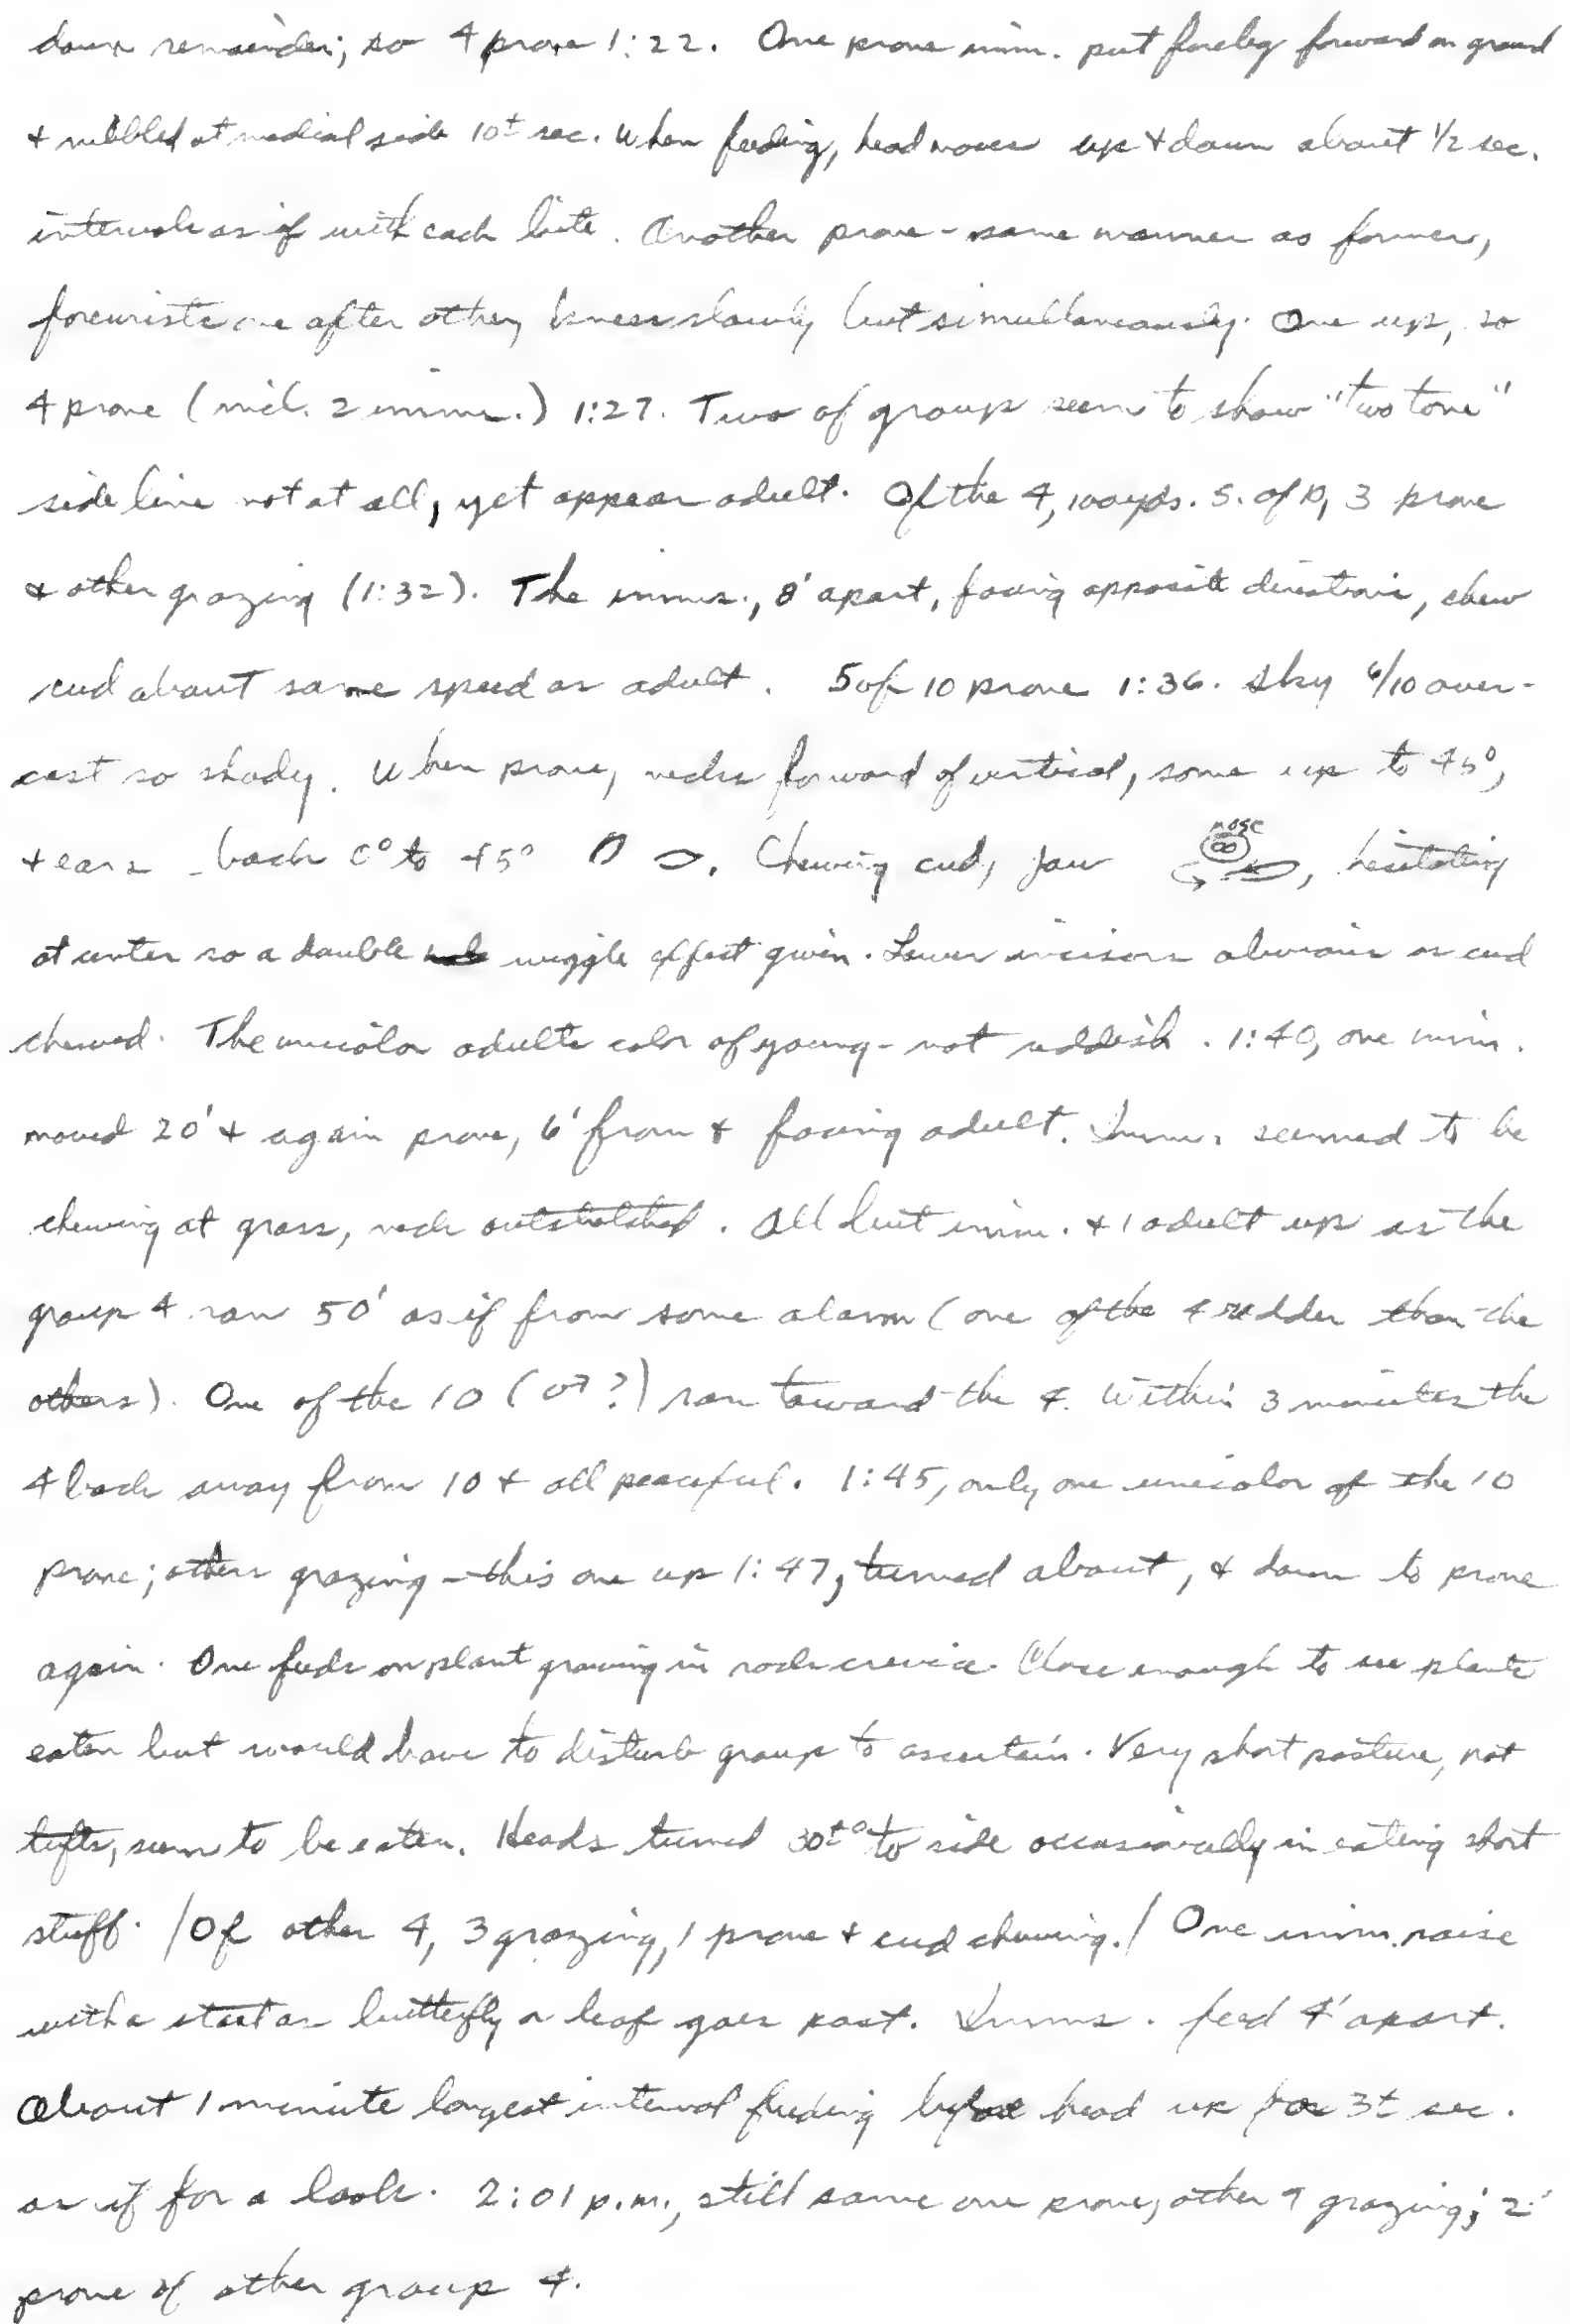 down remainder; so 4 prone 1:22. One prone imm. put foreleg forward on ground
& nibbled at medial side 10± sec. When feeding, head moves up & down about 1/2 sec.
intervals as if with each bite. Another prone - same manner as former,
forewrists one after other, knees slowly but simultaneously. One up, so
4 prone (incl. 2 imms.) 1:27. Two of group seem to show "two tone"
side line not at all, yet appear adult. Of the 4, 100 yds. S. of 10, 3 prone
& other grazing (1:32). The imms., 8' apart, facing opposite directions, chew
cud about same speed as adult. 5 of 10 prone 1:36. Sky 6/10 over-
cast so shady. When prone, necks forward of vertical, some up to 45°,
& ears back 0° to 45°. Chewing cud, jaw nose, hesitating
at center so a double wiggle effect given. Lower incisors obvious as cud
chewed. The unicolor adults color of young - not reddish. 1:40, one imm.
moved 20' & again prone, 6' from & facing adult. Imm. seemed to be
chewing at grass, neck outstretched. All but imm. & 1 adult up as the
group 4 ran 50' as if from some alarm (one of the 4 redder than the
others). One of the 10 (♂?) ran toward the 4. Within 3 minutes the
4 back away from 10 & all peaceful. 1:45, only one unicolor of the 10
prone; others grazing - this one up 1:47, turned about, & down to prone
again. One feeds on plant growing in rock crevice. Close enough to see plants
eaten but would have to disturb group to ascertain. Very short pasture, not
tufts, seem to be eaten. Heads turned 30±° to side occasionally in eating short
stuff. /Of other 4, 3 grazing, 1 prone & cud chewing./ One imm. raise
with a start as butterfly or leaf goes past. Imms. feed 4' apart.
About 1 minute longest interval feeding before head up for 3± sec.
as if for a look. 2:01 p.m., still same one prone, other 9 grazing; 2
prone of other group 4.